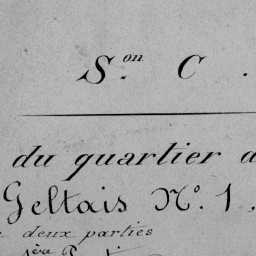 S.on C.
du quartier d
Geltais N.o 1.
deux parties
1ère